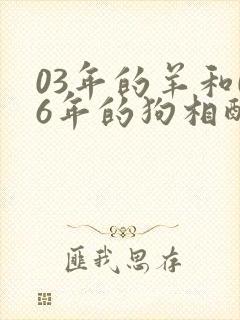 03年的羊和
6年的狗相
匪我思存